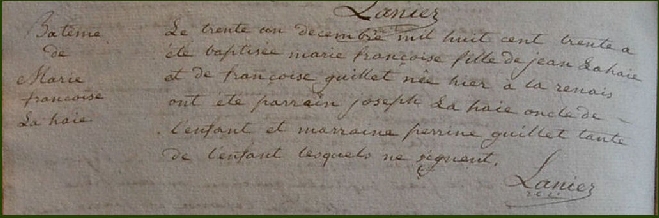 Lanier
Batême
de
Marie
françoise
La haie
Le trente un decembre mil huit cent trente a
été baptisée marie françoise fille de jean La haie
et de françoise guillet née hier a la renais
ont été parrain joseph La haie oncle de
l'enfant et marraine perrine guillet tante
de l'enfant lesquels ne signent.
Lanier